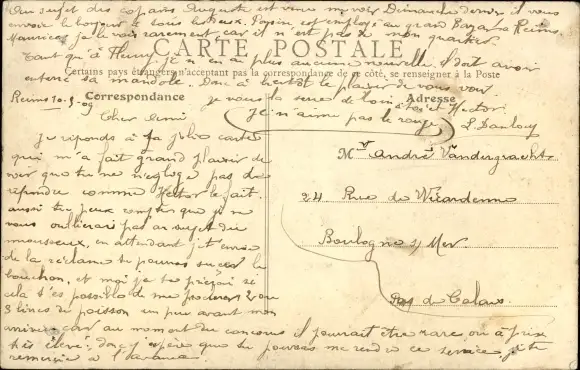 Au sujet des copains Auguste est venu me voir Dimanche dernier il vous
envoie le bonjour à tous les deux. est employé au grand Bazar à Reims
Maurice je le vois rarement car il n'est pas de mon quartier
CARTE POSTALE
Tant qu'à Henry je n'en ai plus aucune nouvelle. il doit avoir
Certains pays étrangers n'acceptant pas la correspondance de ce côté, se renseigner à la Poste
enterré sa mandole. Donc à bientôt le plaisir de vous voir
Reims 10-3-09
Correspondance
Adresse
je vous la serre de loin à toi et Hector.
Cher Ami
Je n'aime pas le rouge
L.
Je réponds à ta jolie carte
qui m'a fait grand plaisir de
voir que tu ne néglige pas de
répondre comme Hector le fait.
aussi tu peux compter que je ne
vous oublierai pas au sujet du
mousseux, en attendant j't'envoie
de la réclame tu pourras sucer le
bouchon, et moi je te si
cela t'es possible de me procurer 2 ou
3 livres de poisson un peu avant mon
arrivée car au moment du concours il pourrait être rare, ou à prix
très élevé; donc j'espère que tu pourras me rendre ce service, j't'en
remercie à l'avance.
Mr André Vandergracht
24 Rue de Wicardenne
Boulogne s/ Mer
Pas de Calais